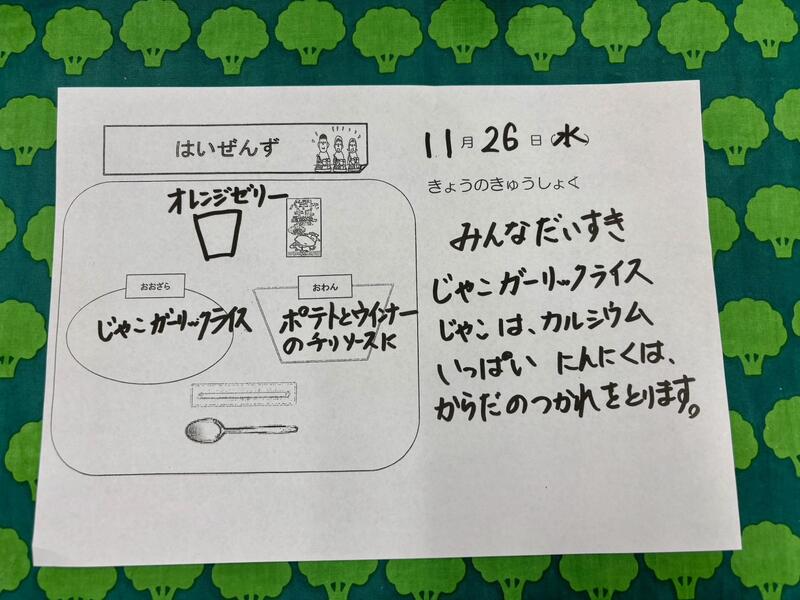 はいぜんず
オレンジゼリー
おおざら
じゃこガーリックライス
おわん
ポテトとウインナー
のチリソースに
11月26日(水)
きょうのきゅうしょく
みんなだいすき
じゃこガーリックライス
じゃこは、カルシウム
いっぱい にんにくは、
からだのつかれをとります。